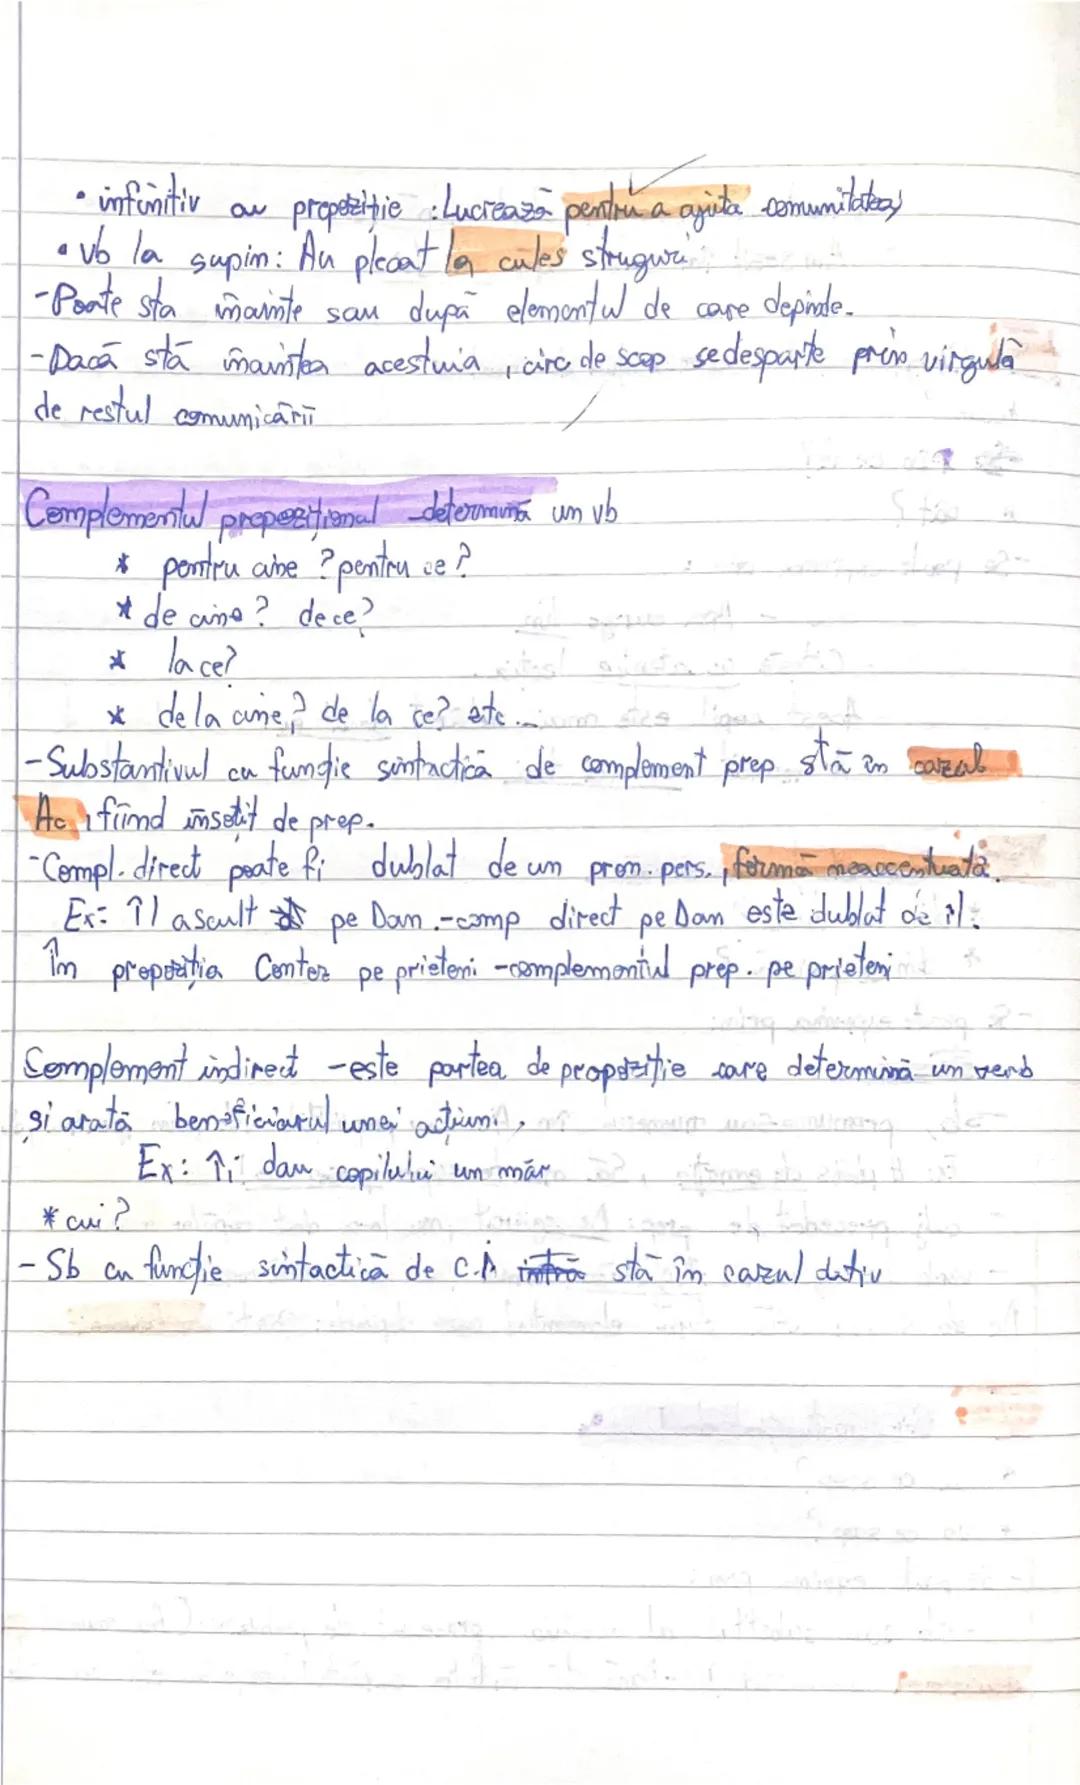 • infinitiv cu prepoziție : Lucrează pentru a ajuta comunitatea
• vb la supim: Au plecat la cules struguri
- Poate sta înainte sau după elementul de care depinde.
- Dacă stă înaintea acestuia, circ de scop se desparte prin virgulă
de restul comunicării
Complementul prepozițional determină un vb
* pentru cine? pentru ce?
* de cine? de ce?
* la ce?
* de la cine? de la ce? etc...
- Substantivul cu funcție sintactică de complement prep stă în cazul
Ac, fiind însoțit de prep.
- Compl. direct poate fi dublat de un pron. pers., formă neaccentuată.
Ex: Îl ascult pe Dan.-comp direct pe Dan este dublat de îl.
În propoziția Contez pe prieteni -complementul prep. pe prieteni
Complement indirect -este partea de propoziție care determină un verb
și arată beneficiarul unei acțiuni.
Ex: Îi dau copilului un măr
* cui?
- Sb cu funcție sintactică de C.I intră stă în cazul dativ